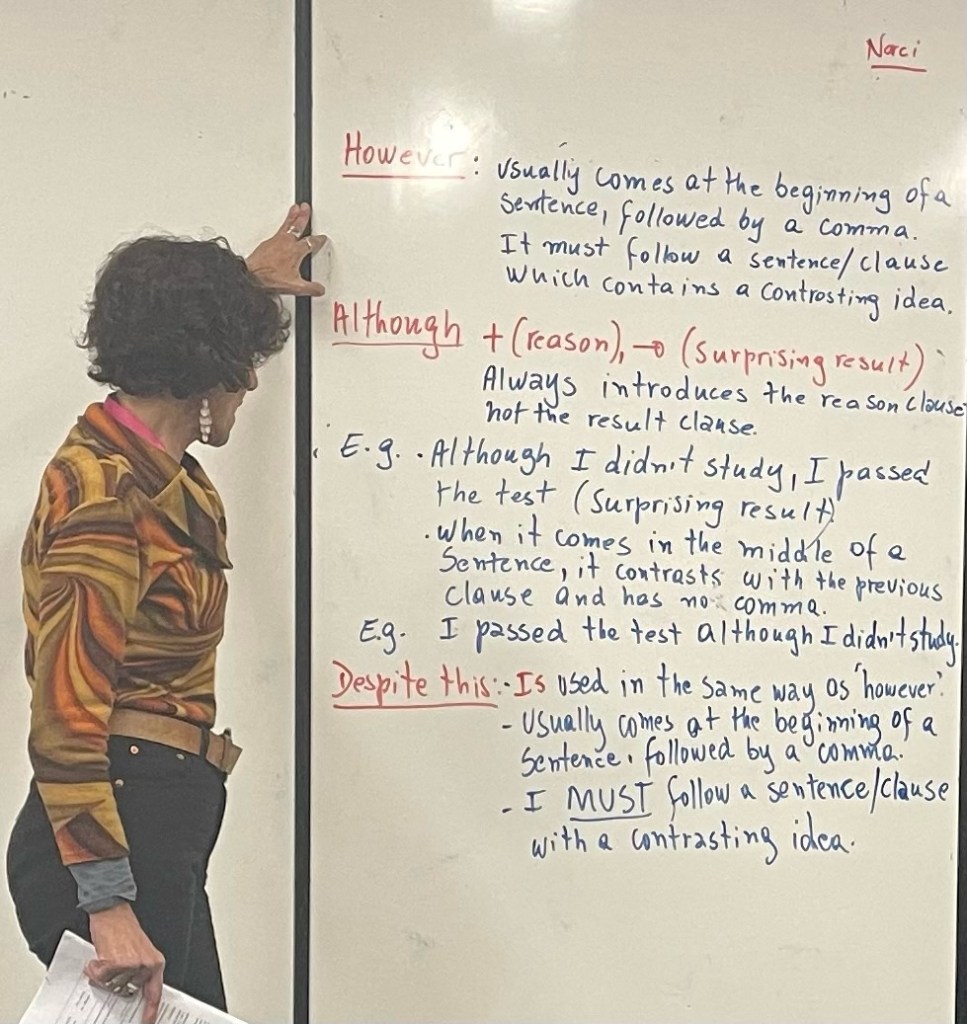 Narci
However: Usually comes at the beginning of a
sentence, followed by a comma.
It must follow a sentence/clause
which contains a controsting idea.
Although + (reason), → (surprising result)
Always introduces the reason clause
not the result clause.
E.g. . Although I didn't study, I passed
the test (surprising result)
. When it comes in the middle of a
sentence, it contrasts with the previous
clause and has no comma.
E.g. I passed the test although I didn't study.
Despite this: - Is used in the same way as 'however'.
- Usually comes at the beginning of a
sentence, followed by a comma.
- I MUST follow a sentence/clause
with a contrasting idea.